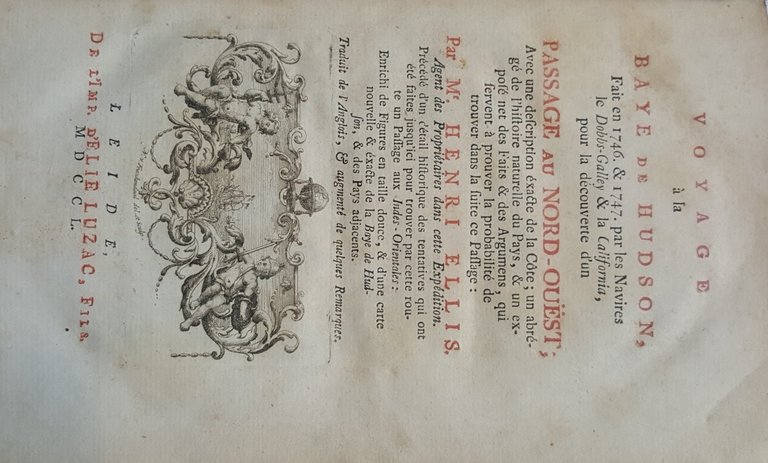 VOYAGE
à la
BAYE DE HUDSON,
Fait en 1746. & 1747. par les Navires
le Dobbs-Galley & la California,
pour la découverte d'un
PASSAGE AU NORD-OUËST;
Avec une deſcription éxacte de la Côte; un abré-
gé de l'hiſtoire naturelle du Pays, & un ex-
poſé net des Faits & des Argumens, qui
ſervent à prouver la probabilité de
trouver dans la ſuite ce Paſſage:
Par Mr. HENRI ELLIS.
Agent des Propriétaires dans cette Expédition.
Précédé d'un détail hiſtorique des tentatives qui ont
été faites juſqu'ici pour trouver par cette rou-
te un Paſſage aux Indes-Orientales:
Enrichi de Figures en taille douce, & d'une carte
nouvelle & éxacte de la Baye de Hud-
ſon, & des Pays adjacents.
Traduit de l'Anglois, & augmenté de quelques Remarques.
LEIDE,
DE L'IMP. D'ELIE LUZAC, FILS.
MDCCL.